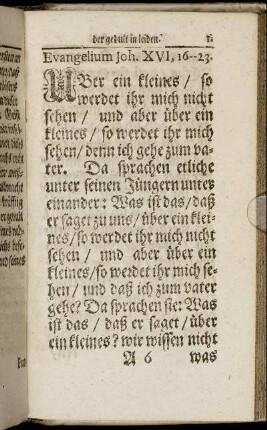 der gedult in leiden.
Evangelium Joh. XVI, 16--23.
UBer ein kleines / so
werdet ihr mich nicht
sehen / und aber über ein
kleines / so werdet ihr mich
sehen / denn ich gehe zum va-
ter. Da sprachen etliche
unter seinen Jüngern unter
einander: Was ist das / daß
er saget zu uns / über ein klei-
nes / so werdet ihr mich nicht
sehen / und aber über ein
kleines / so werdet ihr mich se-
hen / und daß ich zum vater
gehe? Da sprachen sie: Was
ist das / daß er saget / über
ein kleines? wir wissen nicht
A 6 was